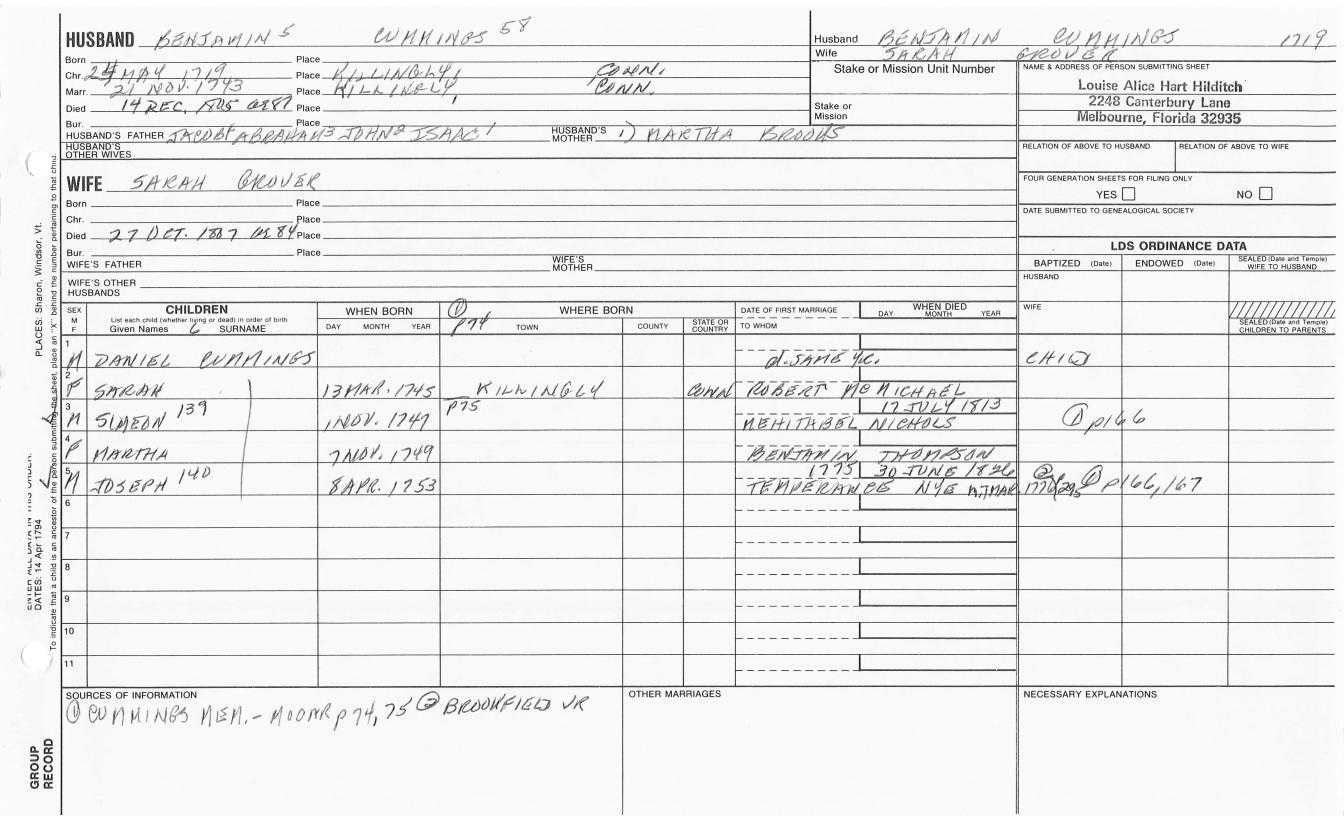 HUSBAND BENJAMIN 5 CUMMINGS 58
Husband BENJAMIN CUMMINGS 1719
Wife SARAH GROVER
Born Place
Chr. 24 MAY 1719 Place KILLINGLY, CONN.
Marr. 21 NOV. 1743 Place KILLINGLY, CONN.
Died 14 DEC. 1805 ae 87 Place
Bur. Place
HUSBAND'S FATHER JACOB4 ABRAHAM3 JOHN2 ISAAC1 HUSBAND'S MOTHER 1) MARTHA BROOKS
HUSBAND'S OTHER WIVES
Stake or Mission Unit Number
Stake or Mission
NAME & ADDRESS OF PERSON SUBMITTING SHEET
Louise Alice Hart Hilditch
2248 Canterbury Lane
Melbourne, Florida 32935
RELATION OF ABOVE TO HUSBAND RELATION OF ABOVE TO WIFE
FOUR GENERATION SHEETS FOR FILING ONLY
YES NO
DATE SUBMITTED TO GENEALOGICAL SOCIETY
WIFE SARAH GROVER
Born Place
Chr. Place
Died 27 OCT. 1807 ae 84 Place
Bur. Place
WIFE'S FATHER WIFE'S MOTHER
WIFE'S OTHER HUSBANDS
LDS ORDINANCE DATA
BAPTIZED (Date) ENDOWED (Date) SEALED (Date and Temple) WIFE TO HUSBAND
HUSBAND
WIFE
SEALED (Date and Temple) CHILDREN TO PARENTS
SEX M F
CHILDREN
List each child (whether living or dead) in order of birth
Given Names 6 SURNAME
WHEN BORN
DAY MONTH YEAR
① p74
WHERE BORN
TOWN COUNTY STATE OR COUNTRY
DATE OF FIRST MARRIAGE
TO WHOM
WHEN DIED
DAY MONTH YEAR
1 M DANIEL CUMMINGS d. SAME yr. CHILD
2 F SARAH 13 MAR. 1745 KILLINGLY CONN ROBERT McMICHAEL
3 M SIMEON 139 1 NOV. 1747 p75 17 JULY 1813 MEHITABEL NICHOLS ① p166
4 F MARTHA 7 NOV. 1749 BENJAMIN THOMPSON
5 M JOSEPH 140 8 APR. 1753 1775 30 JUNE 1826 TEMPERANCE NYE INT MAR. 1776 ② p295 ① p166, 167
6
7
8
9
10
11
SOURCES OF INFORMATION
① CUMMINGS MEM. - MOOAR p 74, 75 ② BROOKFIELD VR
OTHER MARRIAGES
NECESSARY EXPLANATIONS
PLACES: Sharon, Windsor, Vt.
DATES: 14 Apr 1794
To indicate that a child is an ancestor of the person submitting the sheet, place an "X" behind the number pertaining to that child.
GROUP RECORD